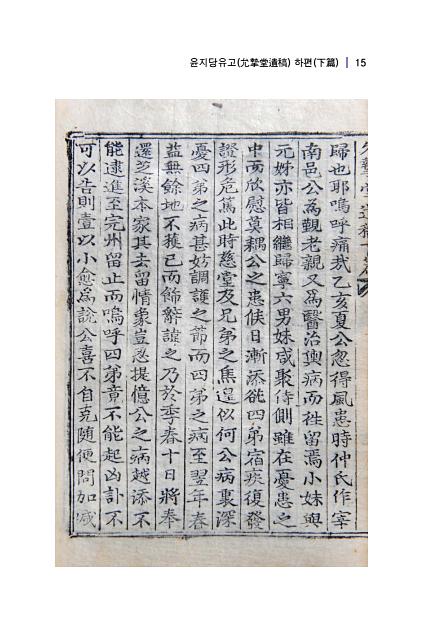 윤지당유고(允摯堂遺稿) 하편(下篇) | 15
歸也耶嗚呼痛哉乙亥夏公忽得風患時仲氏作宰
南邑公為覲老親又為醫治輿病而往留焉小妹與
元姊亦皆相繼歸寧六男妹咸聚侍側雖在憂患之
中而欣慰莫耦公之患候日漸添欲四弟宿疾復發
證形危篤此時慈堂及兄弟之焦遑似何公病裏深
憂四弟之病甚妙調護之節而四弟之病至翌年春
益無餘地不獲已而飾辭諱之乃於季春十日將奉
還芝溪本家其去留情象豈忍提憶公之病越添不
能逮進至完州留止而嗚呼四弟竟不能起凶訃不
可以告則壹以小愈為說公喜不自克隨便問加減